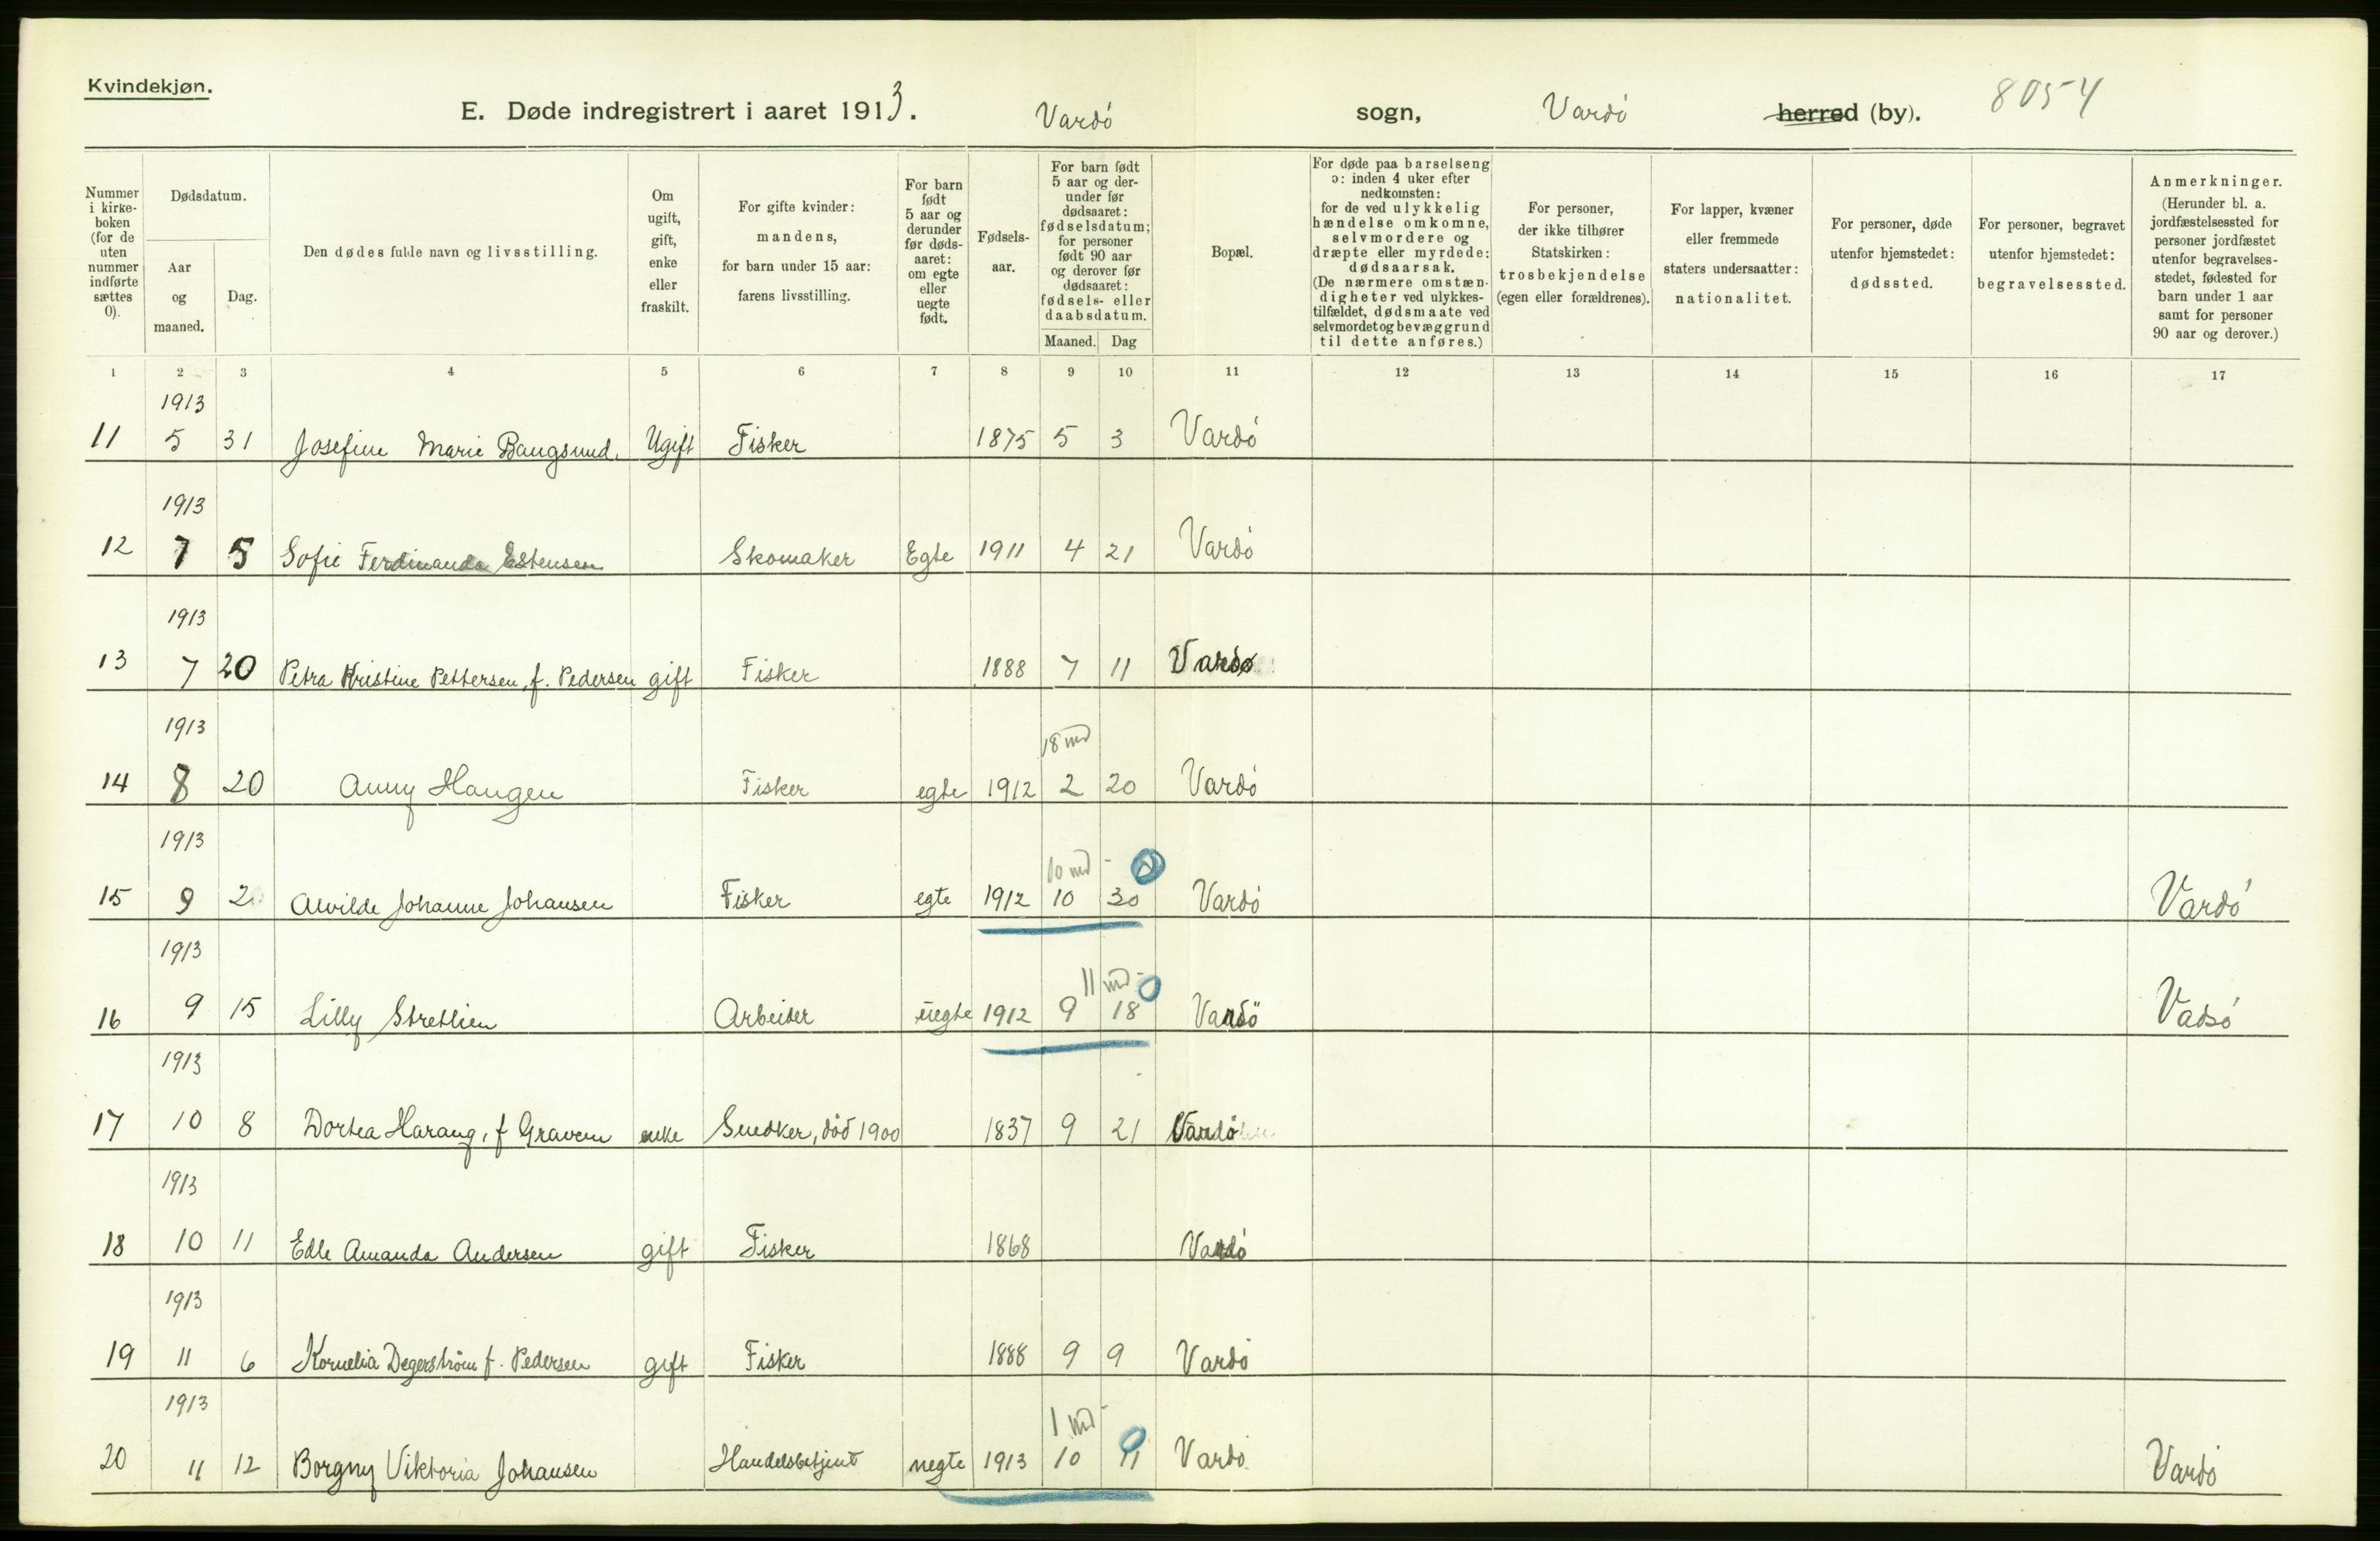 Kvindekjøn.
E. Døde indregistrert i aaret 1913. Vardö sogn, Vardö herred (by). 8054
Nummer i kirke-boken (for de uten nummer indførte sættes 0).
Dødsdatum.
Aar og maaned.
Dag.
Den dødes fulde navn og livsstilling.
Om ugift, gift, enke eller fraskilt.
For gifte kvinder: mandens, for barn under 15 aar: farens livsstilling.
For barn født 5 aar og derunder før døds-aaret: om egte eller uegte født.
Fødsels-aar.
For barn født 5 aar og der-under før dødsaaret: fødselsdatum; for personer født 90 aar og derover før dødsaaret: fødsels- eller daabsdatum.
Maaned. Dag
Bopæl.
For døde paa barselseng ɔ: inden 4 uker efter nedkomsten: for de ved ulykkelig hændelse omkomne, selvmordere og dræpte eller myrdede: dødsaarsak. (De nærmere omstæn-digheter ved ulykkes-tilfældet, dødsmaate ved selvmordet og bevæggrund til dette anføres.)
For personer, der ikke tilhører Statskirken: trosbekjendelse (egen eller forældrenes).
For lapper, kvæner eller fremmede staters undersaatter: nationalitet.
For personer, døde utenfor hjemstedet: dødssted.
For personer, begravet utenfor hjemstedet: begravelsessted.
Anmerkninger. (Herunder bl. a. jordfæstelsessted for personer jordfæstet utenfor begravelses-stedet, fødested for barn under 1 aar samt for personer 90 aar og derover.)
1 2 3 4 5 6 7 8 9 10 11 12 13 14 15 16 17
1913
11 5 31 Josefine Marie Bangsund. Ugift Fisker 1875 5 3 Vardö
1913
12 7 5 Sofie Ferdinanda Estensen Skomaker Egte 1911 4 21 Vardö
1913
13 7 20 Petra Kristine Pettersen, f. Pedersen gift Fisker 1888 7 11 Vardø
1913 18 md
14 8 20 Anny Haugen Fisker egte 1912 2 20 Vardö
1913 10 md
15 9 2 Alvilde Johanne Johansen Fisker egte 1912 10 30 Vardö Vardö
1913 11 md
16 9 15 Lilly Stretlien Arbeider uegte 1912 9 18 Vardö Vadsö
1913
17 10 8 Dortea Harang, f Graven enke Snedker, död 1900 1837 9 21 Vardö
1913
18 10 11 Edle Amanda Andersen gift Fisker 1868 Vardö
1913
19 11 6 Kornelia Degerström f. Pedersen gift Fisker 1888 9 9 Vardö
1913 1 md
20 11 12 Borgny Viktoria Johansen Handelsbetjent uegte 1913 10 11 Vardö Vardö